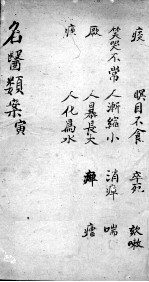 瞑目不食 卒死 欬嗽
笑哭不常 人漸縮小 喘
厥 人暴長大
人化爲水
名醫類案寅